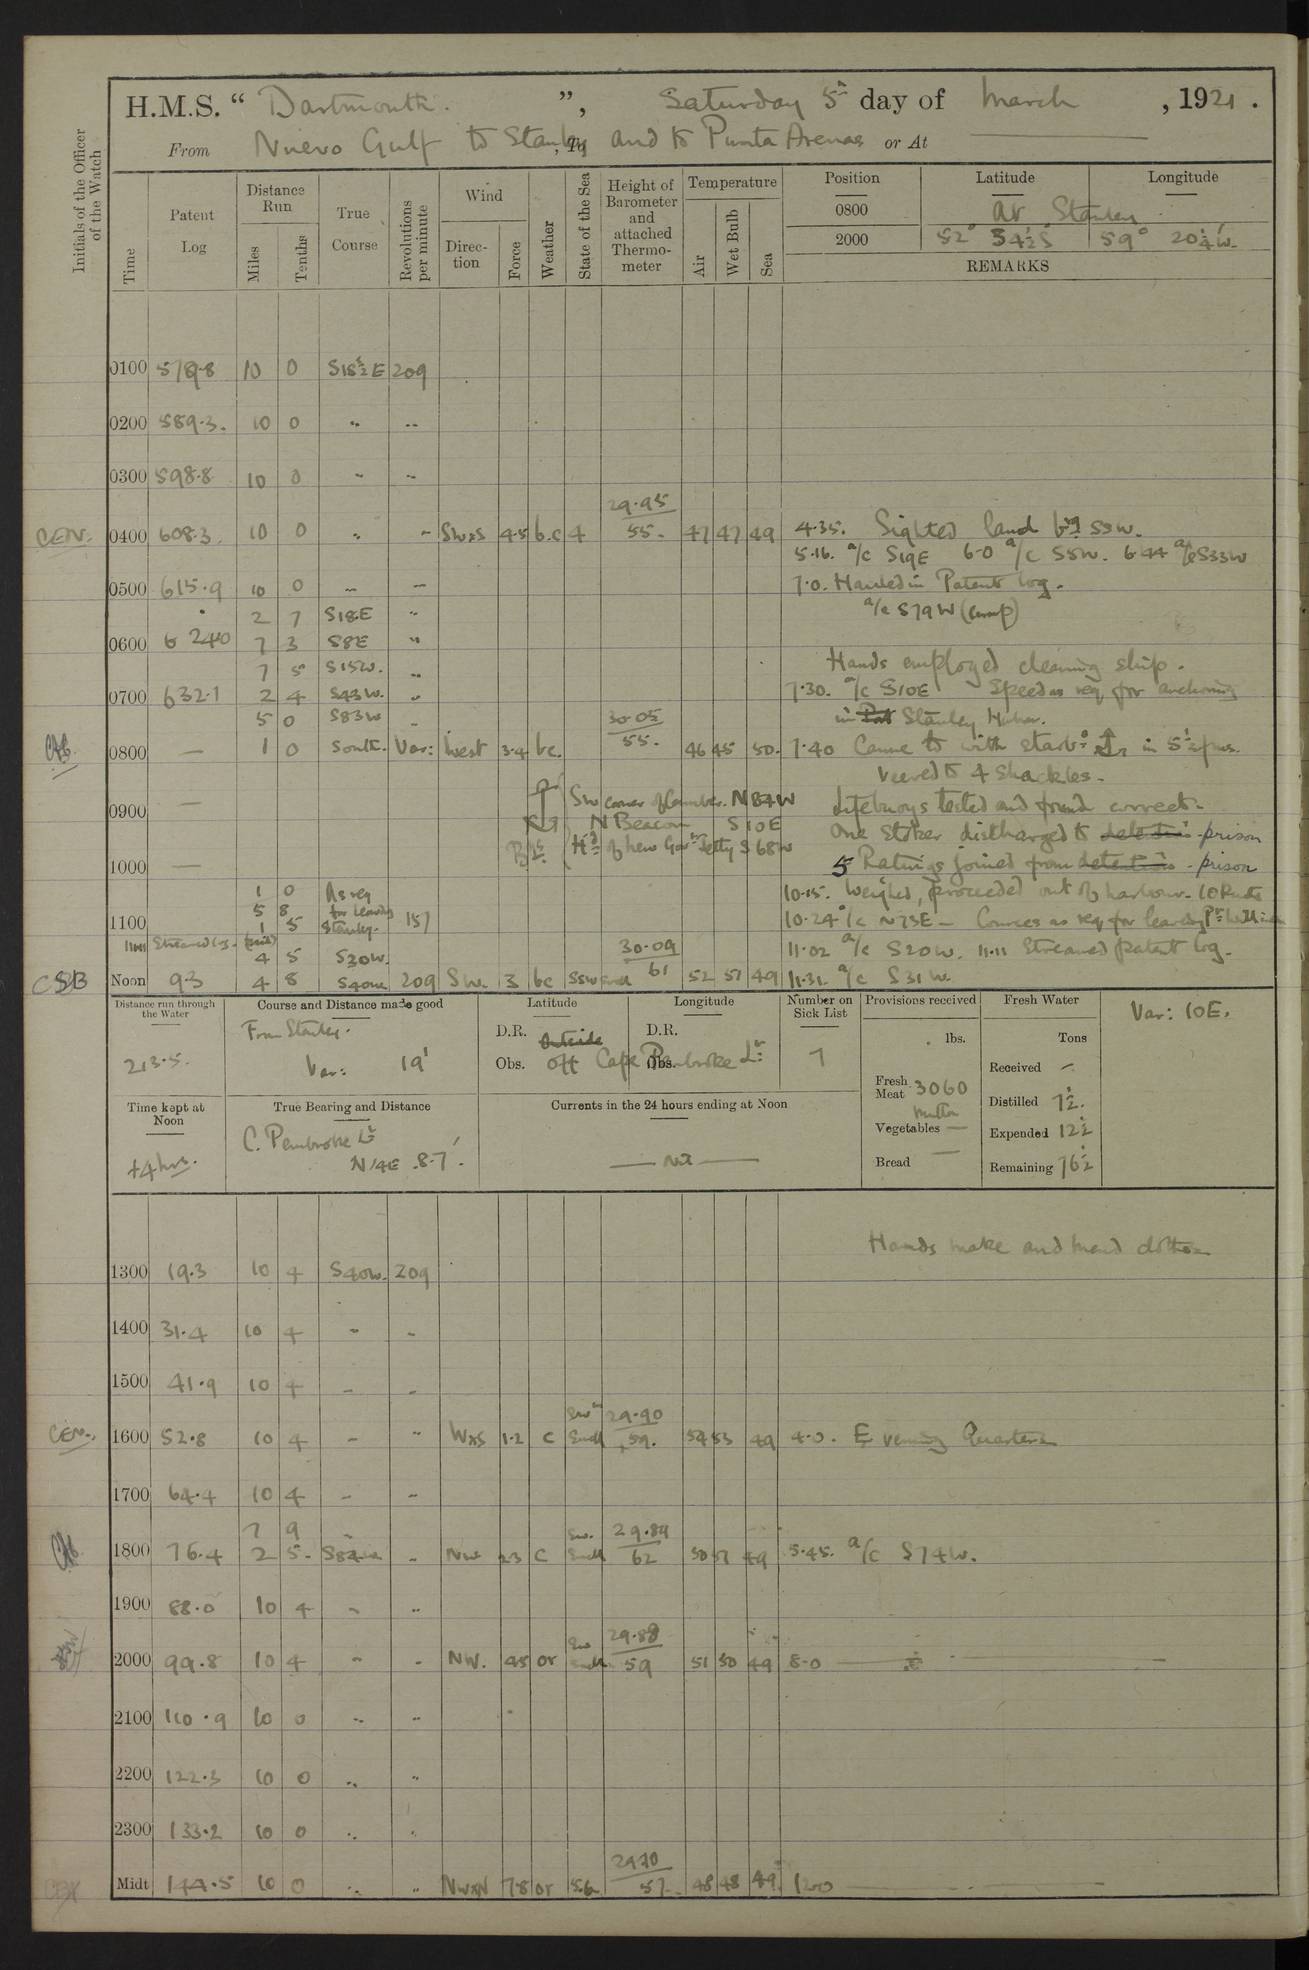 H.M.S. “ Dartmouth. ”, Saturday 5th day of March, 1921.
From Nuevo Gulf to Stanley, To and to Punta Arenas or At
Initials of the Officer of the Watch
Time
Patent Log
Distance Run
Miles
Tenths
True Course
Revolutions per minute
Wind
Direction
Force
Weather
State of the Sea
Height of Barometer and attached Thermometer
Temperature
Air
Wet Bulb
Sea
Position Latitude Longitude
0800 at Stanley
2000 52° 54½' S 59° 20¼' W.
REMARKS
0100 578.8 10 0 S18½E 209
0200 589.3. 10 0 " "
0300 598.8 10 0 " "
29.95
CEN. 0400 608.3 10 0 " " SWxS 4.5 b.c 4 55. 47 47 49 4.35. Sighted land brg S3W.
5.16. a/c S19E 6.0 a/c S5W. 6.44 a/c S33W
0500 615.9 10 0 " " 7.0. Hauled in Patent log.
2 7 S18E " a/c S79W (comp)
0600 6 240 7 3 S8E "
7 5 S15W. " Hands employed cleaning ship.
0700 632.1 2 4 S43W. " 7.30. a/c S10E Speed as req for anchoring
5 0 S83W " 30.05 in Port Stanley Harbour.
0800 — 1 0 South. Var: West 3.4 bc. 55. 46 45 50. 7.40 Came to with starbd in 5½ fms.
Veered to 4 shackles.
0900 — SW corner of Camber. N84W Lifebuoys tested and found correct.
N Beacon S10E One Stoker discharged to detention prison
1000 — Hd of new Govt Jetty S68W 5 Ratings joined from detention - prison
1 0 As req 10.15. Weighed, proceeded out of harbour.
5 8 for leaving
1100 1 5 Stanley. 157 10.24 a/c N73E — Courses as req for leaving
1101 Streamed log 4 5 S30W. 30.09 11.02 a/c S20W. 11.11 Streamed patent log.
CSB Noon 9.3 4 8 S40W 209 SW. 3 bc SSW 61 52 51 49 11.31. a/c S31W.
Distance run through the Water
213.5.
Course and Distance made good
From Stanley.
Var: 19'
Latitude Longitude
D.R. Outside D.R.
Obs. off Cape Pembroke Lt Obs.
Number on Sick List
7
Provisions received
lbs.
Fresh Meat 3060
Mutton
Vegetables —
Bread —
Fresh Water
Tons
Received —
Distilled 7½.
Expended 12½
Remaining 76½
Var: 10E.
Time kept at Noon
+4 hrs.
True Bearing and Distance
C. Pembroke Lt
N14E .8.7'.
Currents in the 24 hours ending at Noon
— Nil —
Hands make and mend clothes
1300 19.3 10 4 S40W. 209
1400 31.4 10 4 " "
1500 41.9 10 4 " "
SW 29.90
CEN. 1600 52.8 10 4 " " WxS 1.2 c Swell 59. 54 53 49 4.0. Evening Quarters
1700 64.4 10 4 " "
7 9 " SW. 29.89
1800 76.4 2 5. " NW 2.3 c Swell 62 50 51 49 5.45. a/c S74W.
1900 88.0 10 4 " "
SW 29.88
2000 99.8 10 4 " " NW. 4.5 or Swell 59 51 50 49 8.0
2100 110.9 10 0 " "
2200 122.3 10 0 " "
2300 133.2 10 0 " "
29.70
Midt 144.5 10 0 " " NWxN 7.8 or 56 57 48 48 49 12.0